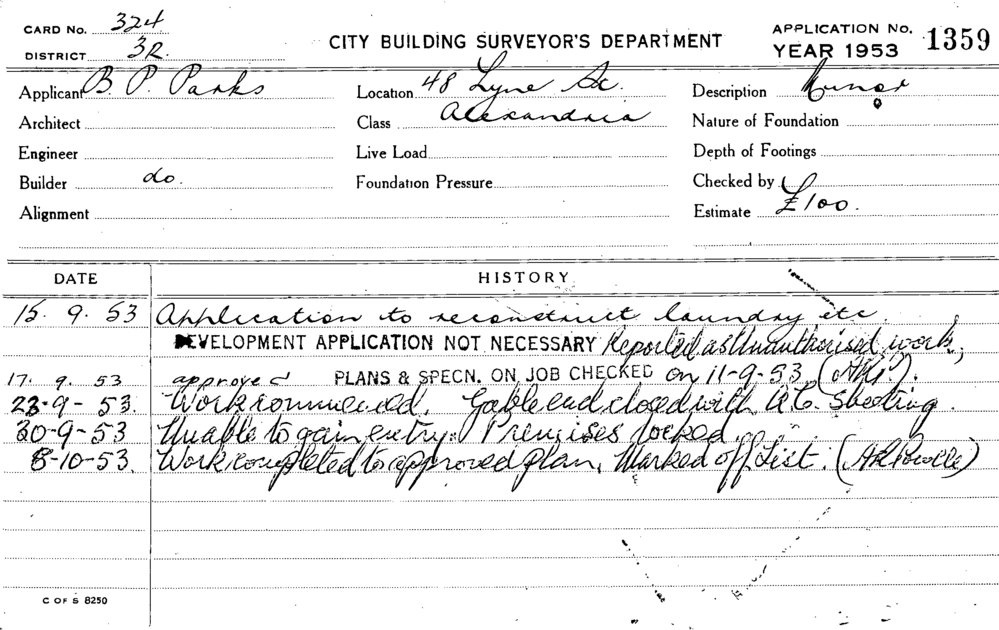 CARD No. 324
DISTRICT 3R.
CITY BUILDING SURVEYOR'S DEPARTMENT
APPLICATION No. 1359
YEAR 1953
Applicant B. P. Parks
Location 48 Lyne St.
Description Minor
Architect
Class Alexandria
Nature of Foundation
Engineer
Live Load
Depth of Footings
Builder do.
Foundation Pressure
Checked by
Alignment
Estimate £100.
DATE HISTORY
15. 9. 53 Application to reconstruct laundry etc
DEVELOPMENT APPLICATION NOT NECESSARY Reported as Unauthorised work,
17. 9. 53 approved PLANS & SPECN. ON JOB CHECKED on 11-9-53
23-9-53. Work commenced. Gable end closed with A.C. Sheeting.
30-9-53 Unable to gain entry. Premises locked.
8-10-53. Work completed to approved plan. Marked off List.
C OF S 8250